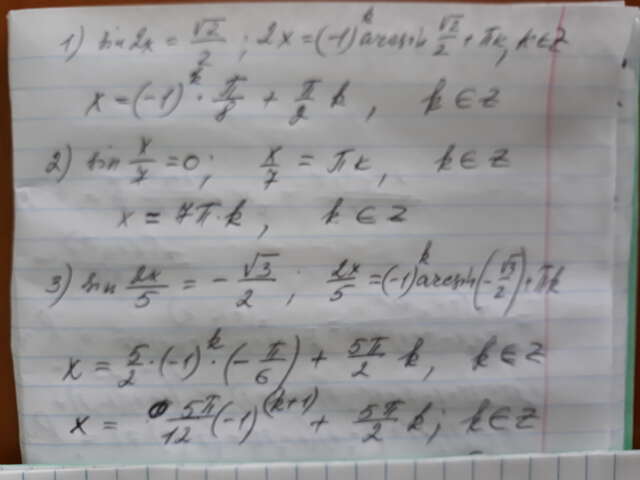 1) sin 2x = √2/2; 2x = (-1)^k arcsin √2/2 + πk, k ∈ Z
x = (-1)^k · π/8 + π/2 k, k ∈ Z
2) sin x/7 = 0; x/7 = πk, k ∈ Z
x = 7π·k, k ∈ Z
3) sin 2x/5 = -√3/2; 2x/5 = (-1)^k arcsin(-√3/2) + πk
x = 5/2 · (-1)^k · (-π/6) + 5π/2 k, k ∈ Z
x = 5π/12 (-1)^(k+1) + 5π/2 k; k ∈ Z